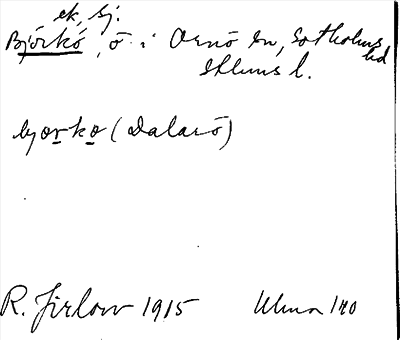 ek, sj.
Björkö, ö i Ornö sn, Sotholms hd
Sthlms l.
bjorko (Dalarö)
R. Jirlow 1915 Ulma 140